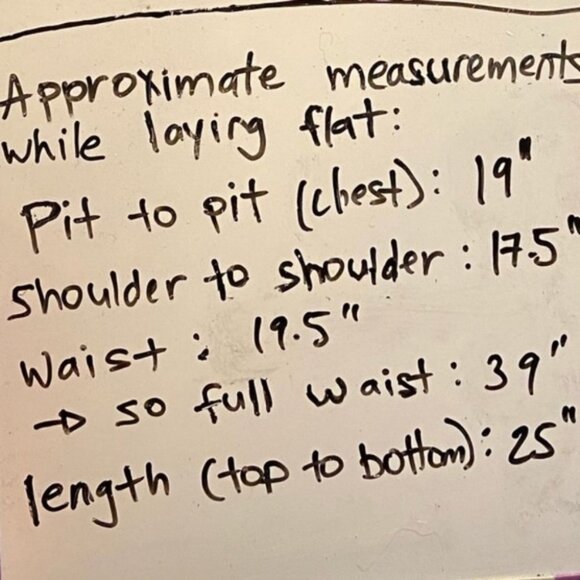 Approximate measurements
while laying flat:
Pit to pit (chest): 19"
shoulder to shoulder: 17.5"
waist: 19.5"
→ so full waist: 39"
length (top to bottom): 25"